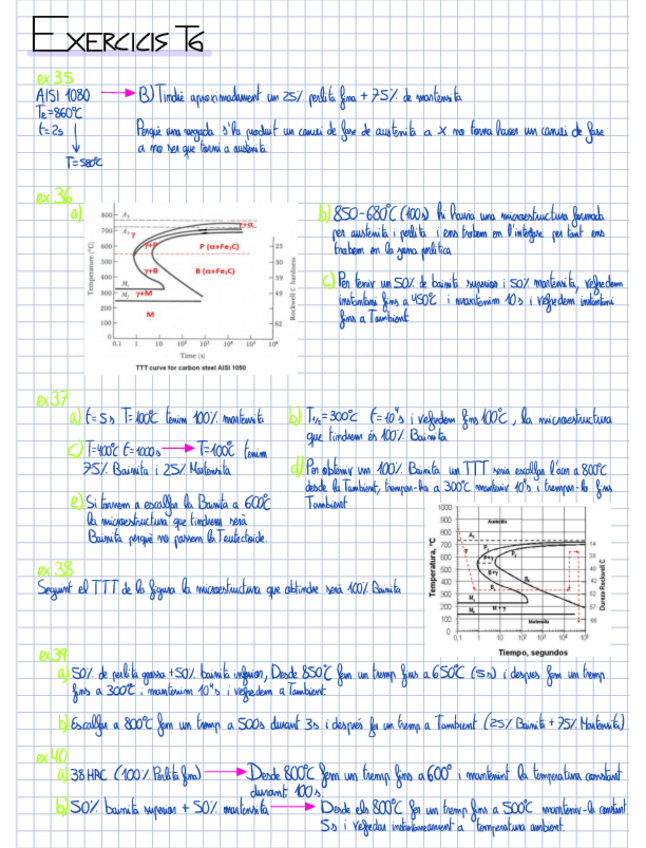 EXERCICIS T6
ex35
AISI 1080 → B) Tindré aproximadament un 25% perlita fina + 75% de martensita
Te=860ºC
t=2s Perquè una vegada s'ha produit un canvi de fase de austenita a x no torna haver un canvi de fase
a no ser que torni a austenita.
T=580ºC
ex36
a)
800
700
600
500
400
300
200
100
A3
A1
γ
γ+α
γ+P
P (α+Fe3C)
γ+B
B (α+Fe3C)
Ms
γ+M
Mf
M
Temperature (ºC)
Rockwell C hardness
0.1 1 10
Time (s)
TTT curve for carbon steel AISI 1050
b) 850-680ºC (100s) hi hauria una microestructura formada
per austenita i perlita i ens trobem en l'interfase per tant ens
trobem en la zona perlítica
c) Per tenir un 50% de bainita superior i 50% martensita, refredem
instantani fins a 450ºC i mantenim 10s i refredem instantani
fins a Tambient
ex37
a) t=5s T=100ºC tenim 100% martensita
b) T1/2=300ºC t=10⁴s i refredem fins 100ºC, la microestructura
que tindrem és 100% Bainita
c) T=400ºC t=1000s → T=100ºC tenim
75% Bainita i 25% Martensita
d) Per obtenir un 100% Bainita un TTT seria escalfar l'acer a 800ºC
desde la Tambient, trempar-ho a 300ºC mantenir 10⁴s i trempar-lo fins
Tambient
e) Si tornem a escalfar la Bainita a 600ºC
la microestructura que tindrem serà
Bainita perquè no passem la Teutectoide.
1000
900
800
700
600
500
400
300
200
100
Austenita
Martensita
M + γ
Temperatura, ºC
Dureza Rockwell C
Tiempo, segundos
ex38
Segunt el TTT de la figura la microestructura que obtindre serà 100% Bainita
ex39
a) 50% de perlita grossa + 50% bainita inferior, Desde 850ºC fem un tremp fins a 650ºC (5s) i despres fem un tremp
fins a 300ºC i mantenim 10⁴s i refredem a Tambient.
b) Escalfar a 800ºC fem un tremp a 500s durant 3s i després fer un tremp a Tambient (25% Bainita + 75% Martensita)
ex40
a) 38 HRC (100% Perlita fina) → Desde 800ºC fem un tremp fins a 600º i mantenint la temperatura constant
durant 100s.
b) 50% bainita superior + 50% martensita → Desde els 800ºC fer un tremp fins a 500ºC mantenir-lo constant
5s i refredar instantaneament a temperatura ambient.